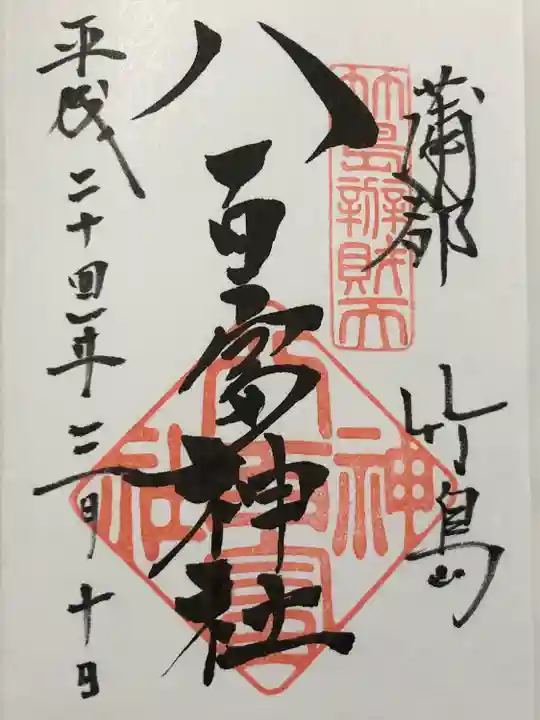 蒲郡 竹島
竹島辨財天
八百富神社
八百富神社
平成二十四年二月十日